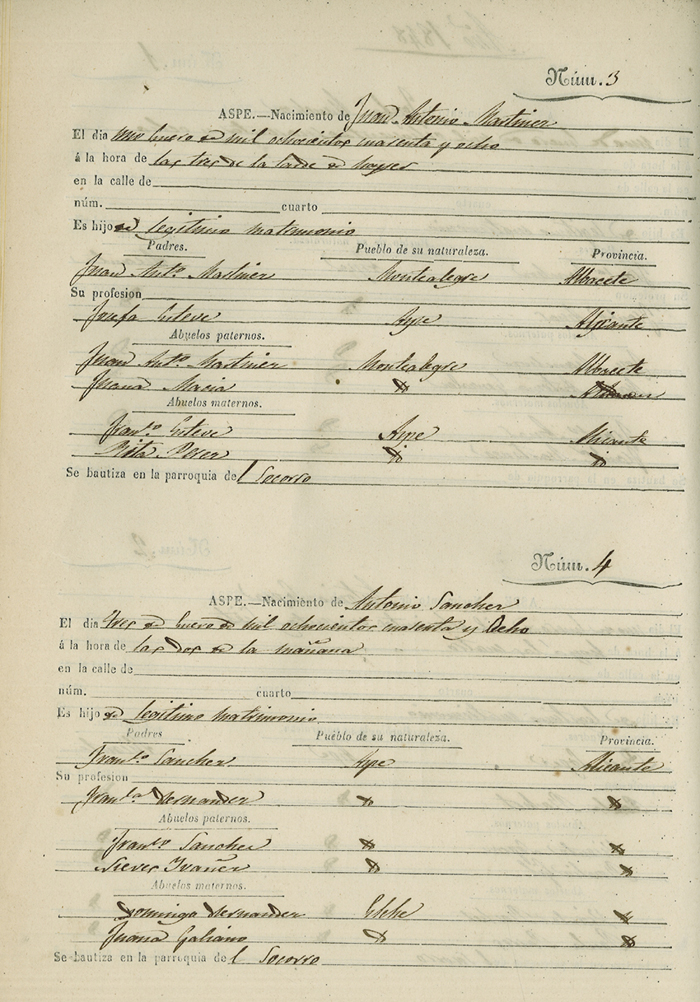 Núm. 3
ASPE.—Nacimiento de Juan Antonio Martinez
El dia uno Enero de mil ochocientos cuarenta y ocho
á la hora de las tres de la tarde de
en la calle de
núm. cuarto
Es hijo de legitimo matrimonio
Padres. Pueblo de su naturaleza. Provincia.
Juan Antº. Martinez Montealegre Albacete
Su profesion
Josefa Esteve Aspe Alicante
Abuelos paternos.
Juan Antº. Martinez Montealegre Albacete
Juana Macia
Abuelos maternos.
Franco. Esteve Aspe Alicante
Rita Perez
Se bautiza en la parroquia del Socorro
Núm. 4
ASPE.—Nacimiento de Antonio Sanchez
El dia tres de Enero de mil ochocientos cuarenta y Ocho
á la hora de las dos de la mañana
en la calle de
núm. cuarto
Es hijo de legitimo matrimonio
Padres Pueblo de su naturaleza. Provincia.
Franco. Sanchez Aspe Alicante
Su profesion
Franca. Hernandez
Abuelos paternos.
Franco. Sanchez
Nieves Ivañez
Abuelos maternos.
Domingo Hernandez Elche
Juana Galiano
Se bautiza en la parroquia del Socorro